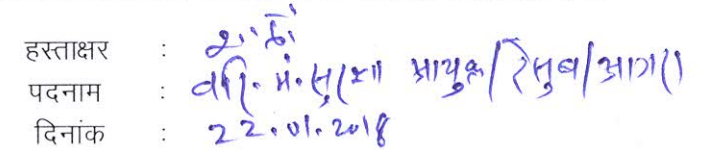 हस्ताक्षर :
पदनाम : वरि. मं. सुरक्षा आयुक्त/रेसुब/आगरा
दिनांक : 22.01.2018